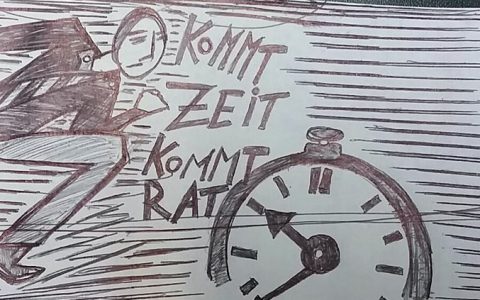 KOMMT
ZEiT
KOMMT
RAT